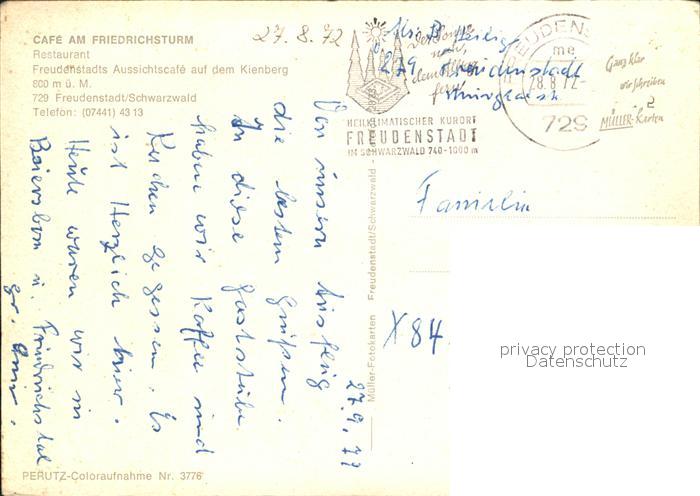 CAFÉ AM FRIEDRICHSTURM
Restaurant
Freudenstadts Aussichtscafé auf dem Kienberg
800 m ü. M.
729 Freudenstadt/Schwarzwald
Telefon: (07441) 43 13
27.8.72
729 Freudenstadt
HEILKLIMATISCHER KURORT
FREUDENSTADT
IM SCHWARZWALD 740-1000 m
FREUDENS
me
28.8.72-
729
Ganz klar
wir schreiben
MÜLLER-Karten
Von unsern Ausflug
die besten Grüßen.
In diese Gaststube
haben wir Kaffee und
Kuchen gegessen. Es
ist Herzlich hier.
Heute waren wir in
Baiersbon u. Friedrichstal
gr.
Müller-Fotokarten Freudenstadt/Schwarzwald
Familie
X 84
privacy protection
Datenschutz
PERUTZ-Coloraufnahme Nr. 3776